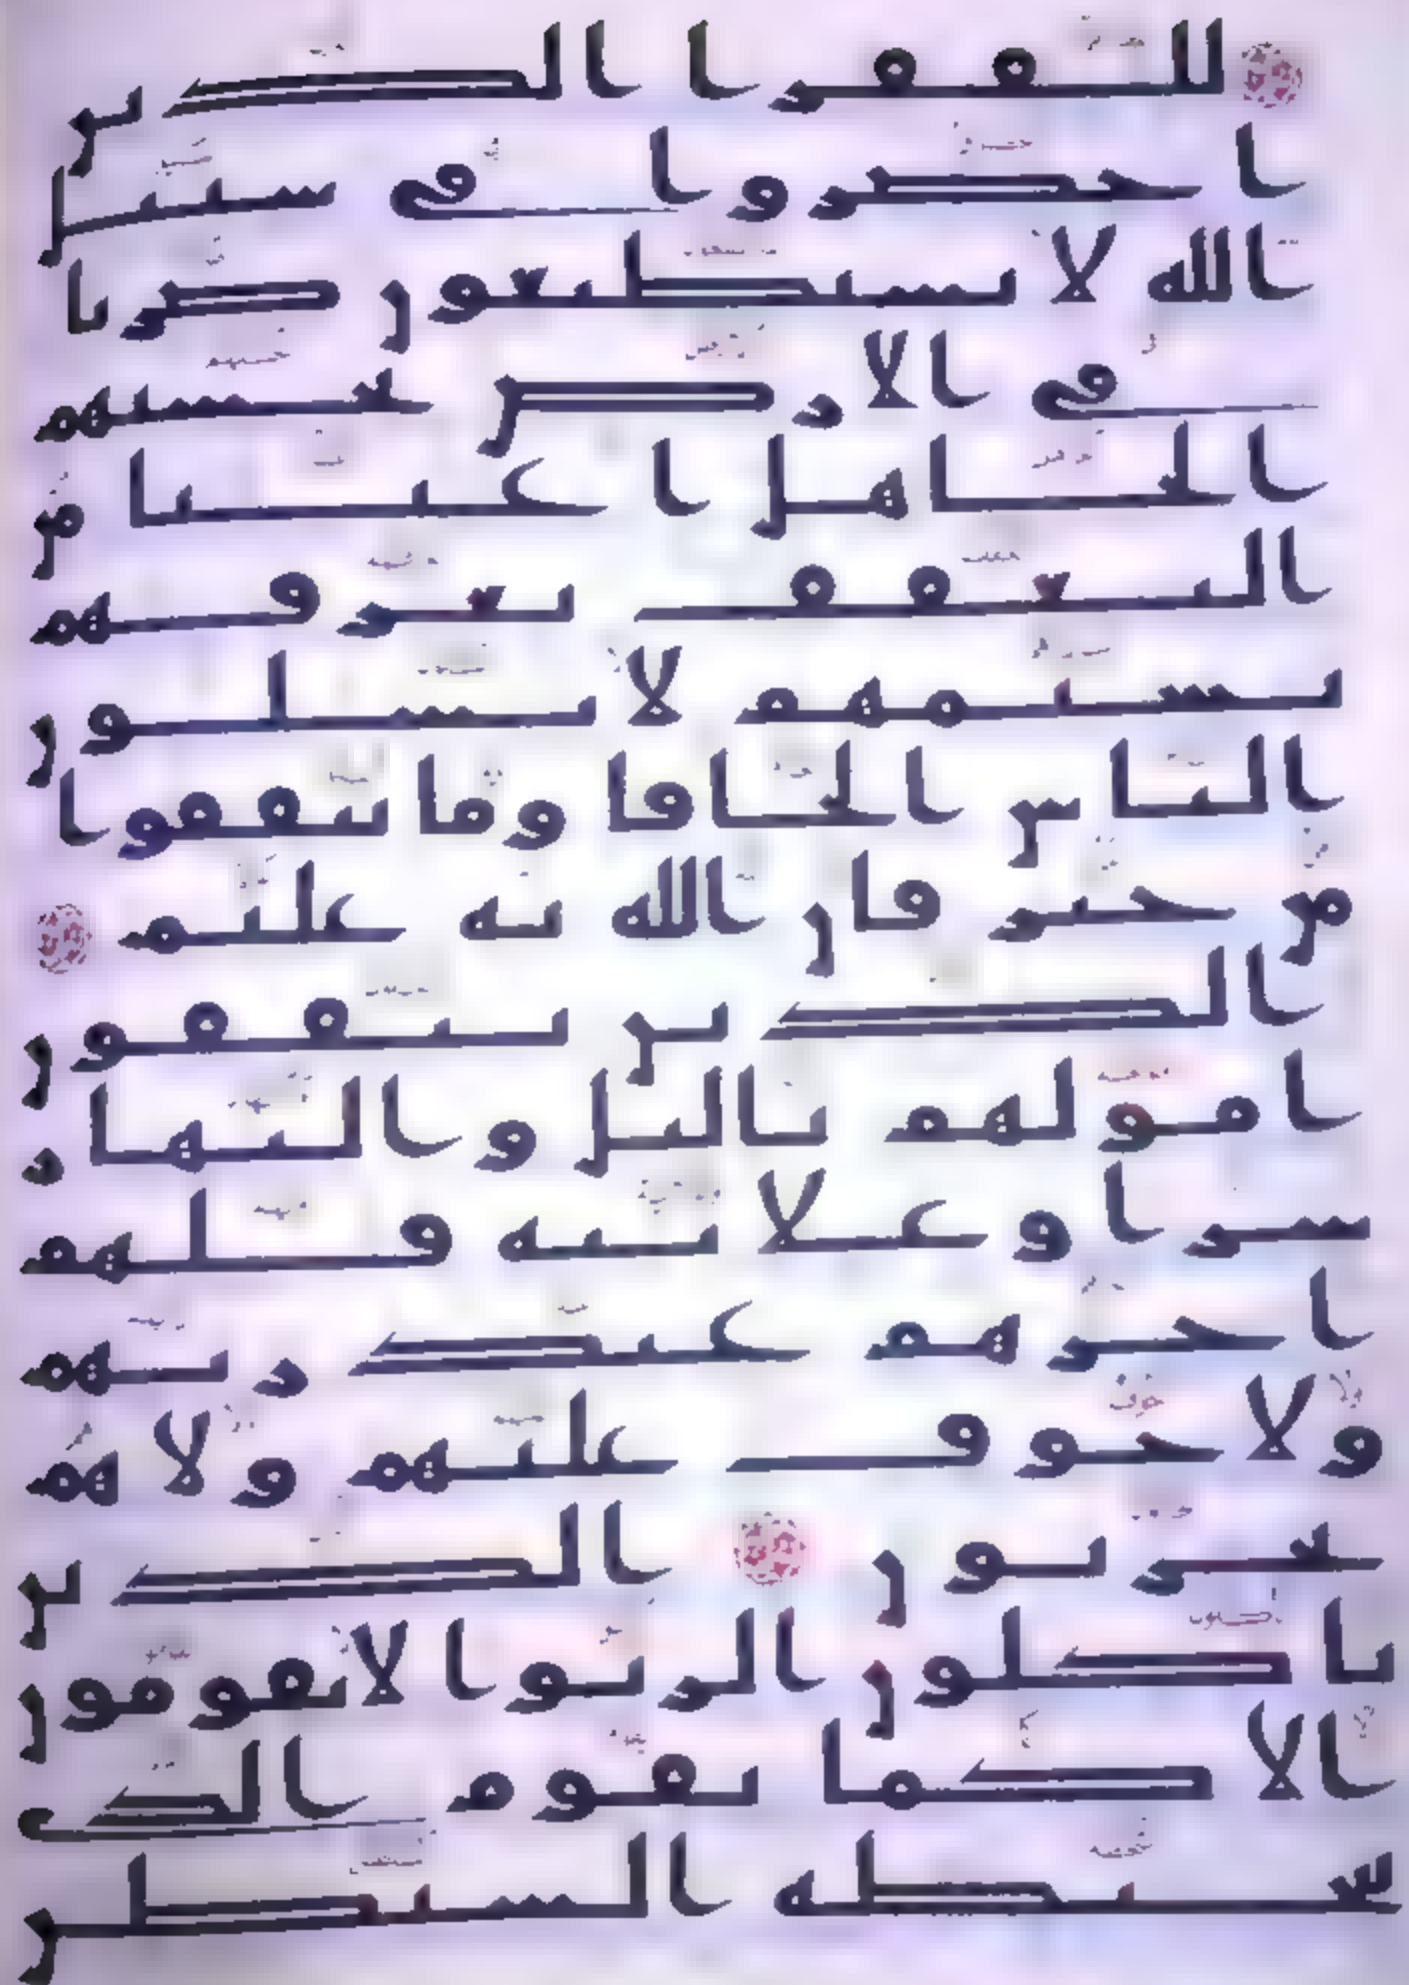 للفقرا الذين
احصروا في سبيل
الله لا يستطيعون ضربا
في الارض يحسبهم
الجاهل اغنيا من
التعفف تعرفهم
بسيمهم لا يسلون
الناس الحافا وما تنفقوا
من خير فان الله به عليم
الذين ينفقون
امولهم باليل والنهار
سرا وعلانية فلهم
اجرهم عند ربهم
ولا خوف عليهم ولا هم
يحزنون الذين
ياكلون الربوا لا يقومون
الا كما يقوم الذي
يتخبطه الشيطن